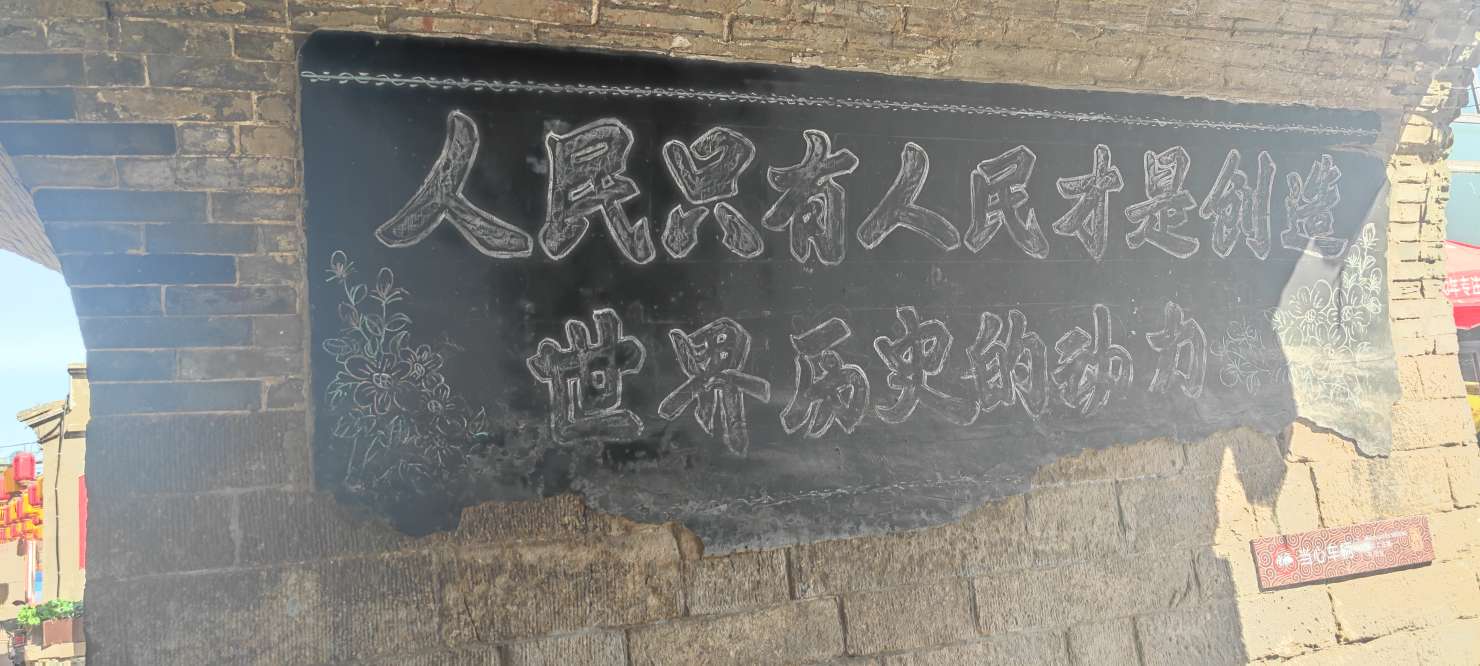 人民只有人民才是创造
世界历史的动力
当心车辆